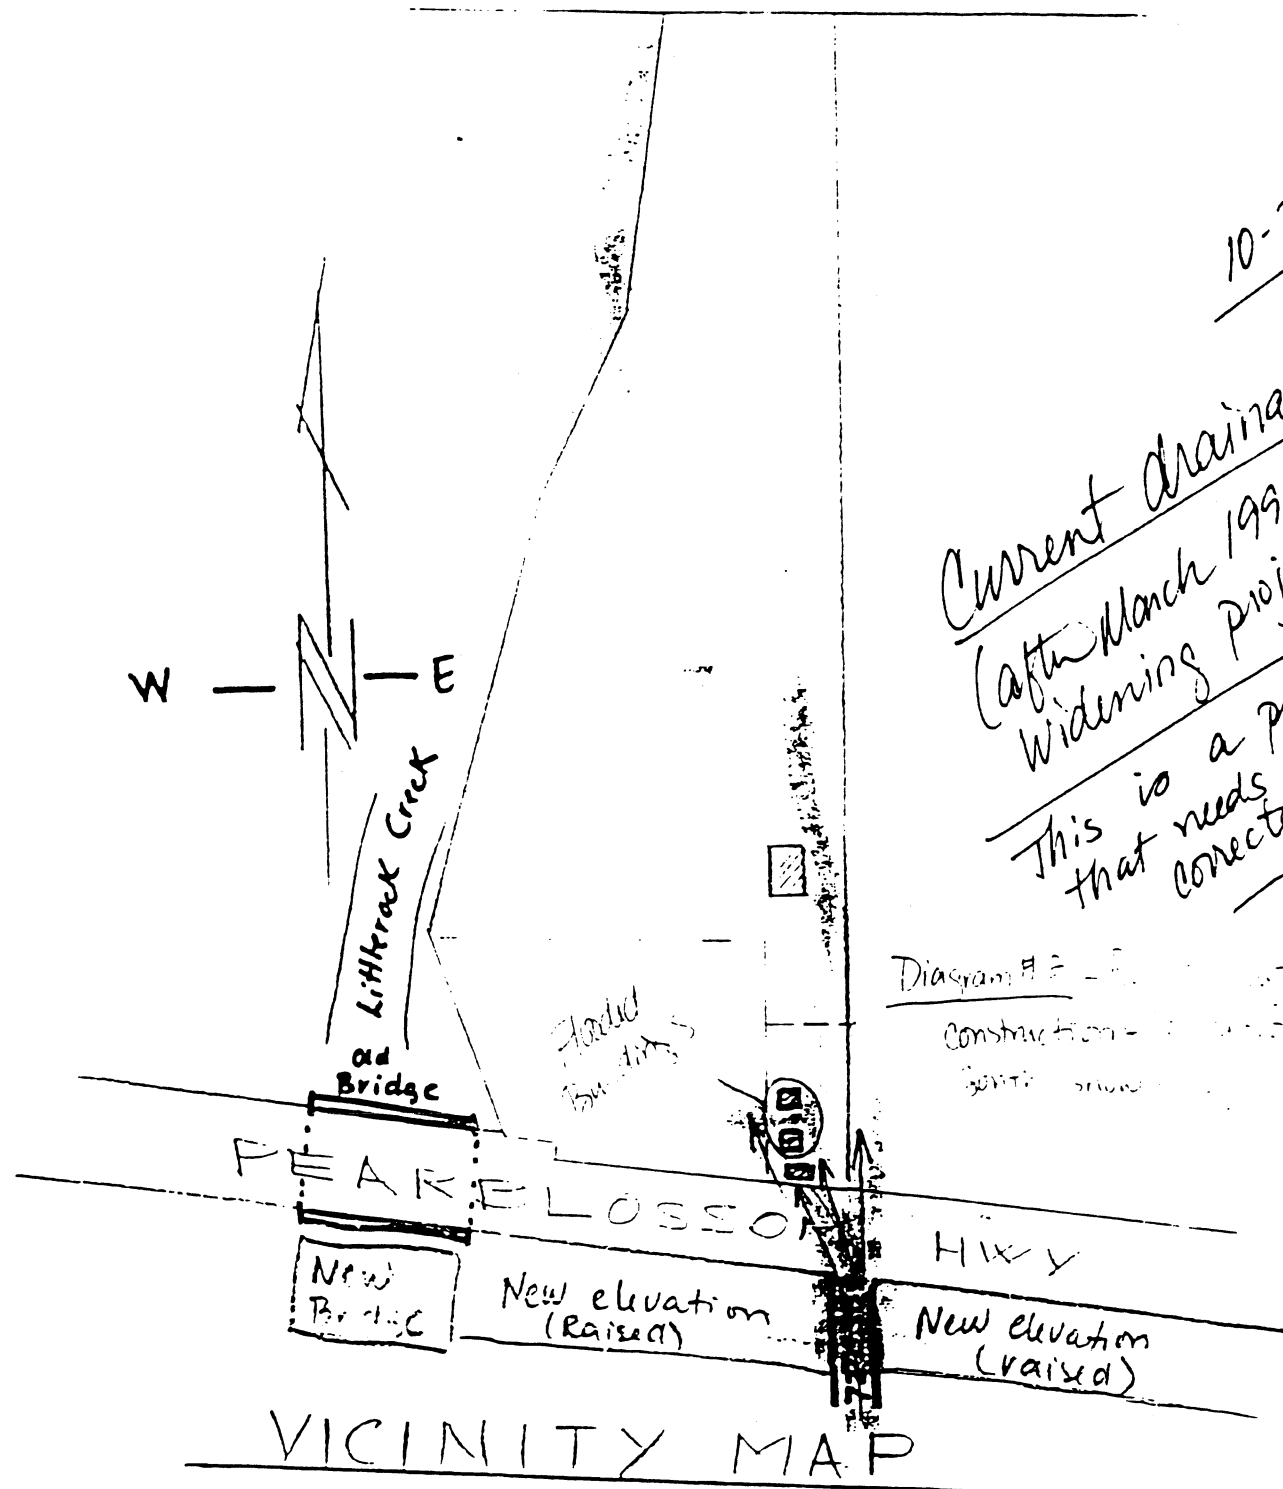 10-
Current draina
(after March 199
Widening proj
This is a p
that needs
correcte
W
N
E
Littlerock Creek
Diagram #
Construction -
Flooded
Buildings
old
Bridge
PEARBLOSSOM HWY
New
Bridge
New elevation
(Raised)
New elevation
(raised)
VICINITY MAP